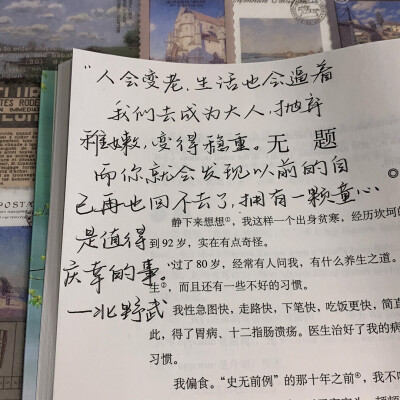 "人会变老，生活也会逼着
我们去成为大人，抛弃
稚嫩，变得稳重。
无 题
而你就会发现以前的自
己再也回不去了，拥有一颗童心
是值得
庆幸的事。"
—北野武
静下来想想①，我这样一个出身贫寒，经历坎坷的
到92岁，实在有点奇怪。
过了80岁，经常有人问我，有什么养生之道。
生②，而且还有一些不好的习惯。
我性急图快，走路快，下笔快，吃饭更快，简直
此，得了胃病、十二指肠溃疡。医生治好了我的病
习惯。
我偏食。"史无前例"的那十年之前④，我不